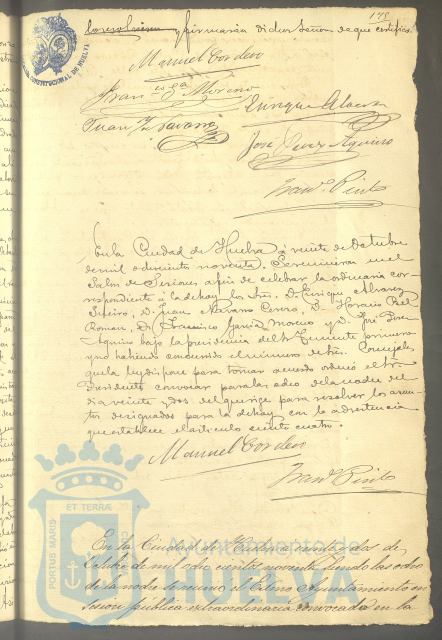 178
y firmaron dichos Señores de que certifico.
Manuel Cordero
Franco Ga Moreno
Enrique Alvarez
Juan Navarro
José Perez Aquino
Franco Pinto
En la Ciudad de Huelva á veinte de Octubre
de mil ochocientos noventa. Se reunieron en el
Salon de Sesiones á fin de celebrar la ordinaria cor
respondiente á la de hoy los Sres. D. Enrique Alvarez
D. Juan Navarro D. Horacio Bell
Roman, D. Francisco García Moreno y D. José Perez
Aquino bajo la presidencia del Teniente primero
y no habiendo concurrido el número de Sres. Concejales
que la ley dispone para tomar acuerdo ordenó el Sr.
Presidente convocar para las ocho de la noche del
dia veinte y dos del que rige para resolver los asun
tos designados para la de hoy con la advertencia
que establece el artículo ciento cuatro.
Manuel Cordero
Franco Pinto
En la Ciudad de Huelva á veinte y dos de
Octubre de mil ochocientos noventa siendo las ocho
de la noche se reunió el Excmo. Ayuntamiento en
Sesion pública extraordinaria convocada en la
PORTUS MARIS ET TERRAE
HUELVA